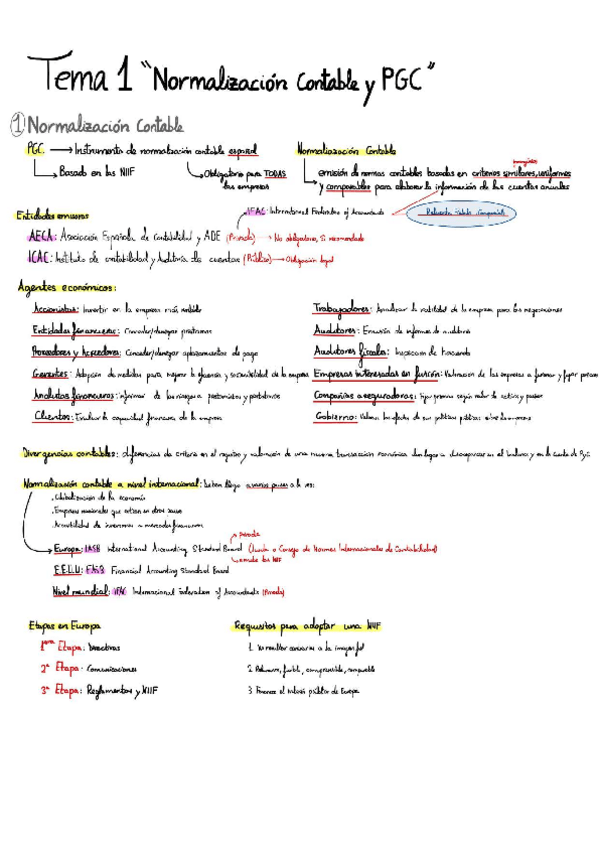 Tema 1 "Normalización Contable y PGC"
1 Normalización Contable
PGC → Instrumento de normalización contable español
Basado en las NIIF
Obligatorio para TODAS
las empresas
Normalización Contable
emisión de normas contables basadas en criterios similares, uniformes
y comparables para elaborar la información de las cuentas anuales
Entidades emisoras
IFAC: International Federation of Accountants
AECA: Asociación Española de Contabilidad y ADE (Privado) → No obligatorio, Sí recomendado
ICAC: Instituto de contabilidad y Auditoría de cuentas (Público) → Obligación legal
Agentes económicos:
Accionistas: Invertir en la empresa más rentable
Entidades financieras: Conceder/denegar préstamos
Proveedores y Acreedores: Conceder/denegar aplazamientos de pago
Gerentes: Adopción de medidas para mejorar la eficiencia y sostenibilidad de la empresa
Analistas financieros: informar de los riesgos a prestamistas y
Clientes: Evaluar la capacidad financiera de la empresa
Trabajadores: la viabilidad de la empresa para las negociaciones
Auditores: Emisión de informes de auditoría
Auditores fiscales: Inspección de hacienda
Empresas interesadas en fusión: Valoración de las empresas a fusionar y fijar precios
Compañías aseguradoras: Fijar primas según valor de activos y pasivos
Gobierno: Valorar los efectos de sus políticas públicas sobre las empresas
Divergencias contables: diferencias de criterio en el registro y valoración de una misma transacción económica dan lugar a discrepancias en el balance y en la cuenta de PyG.
Normalización contable a nivel internacional: Se ha llegado a varios pasos a la vez:
. Globalización de la economía
. Empresas nacionales que cotizan en otros países
. Accesibilidad de inversores a mercados financieros
privado
Europa: IASB International Accounting Standard Board (Junta o Consejo de Normas Internacionales de Contabilidad)
emite las NIIF
E.E.U.U: FASB Financial Accounting Standard Board
Nivel mundial: IFAC International federation of Accountants (Privado)
Etapas en Europa
1era Etapa: Directivas
2ª Etapa: Comunicaciones
3ª Etapa: Reglamentos y NIIF
Requisitos para adoptar una NIIF
1. No resultar contraria a la imagen fiel
2. Relevante, fiable, comprensible, comparable
3. Favorece el interés público de Europa